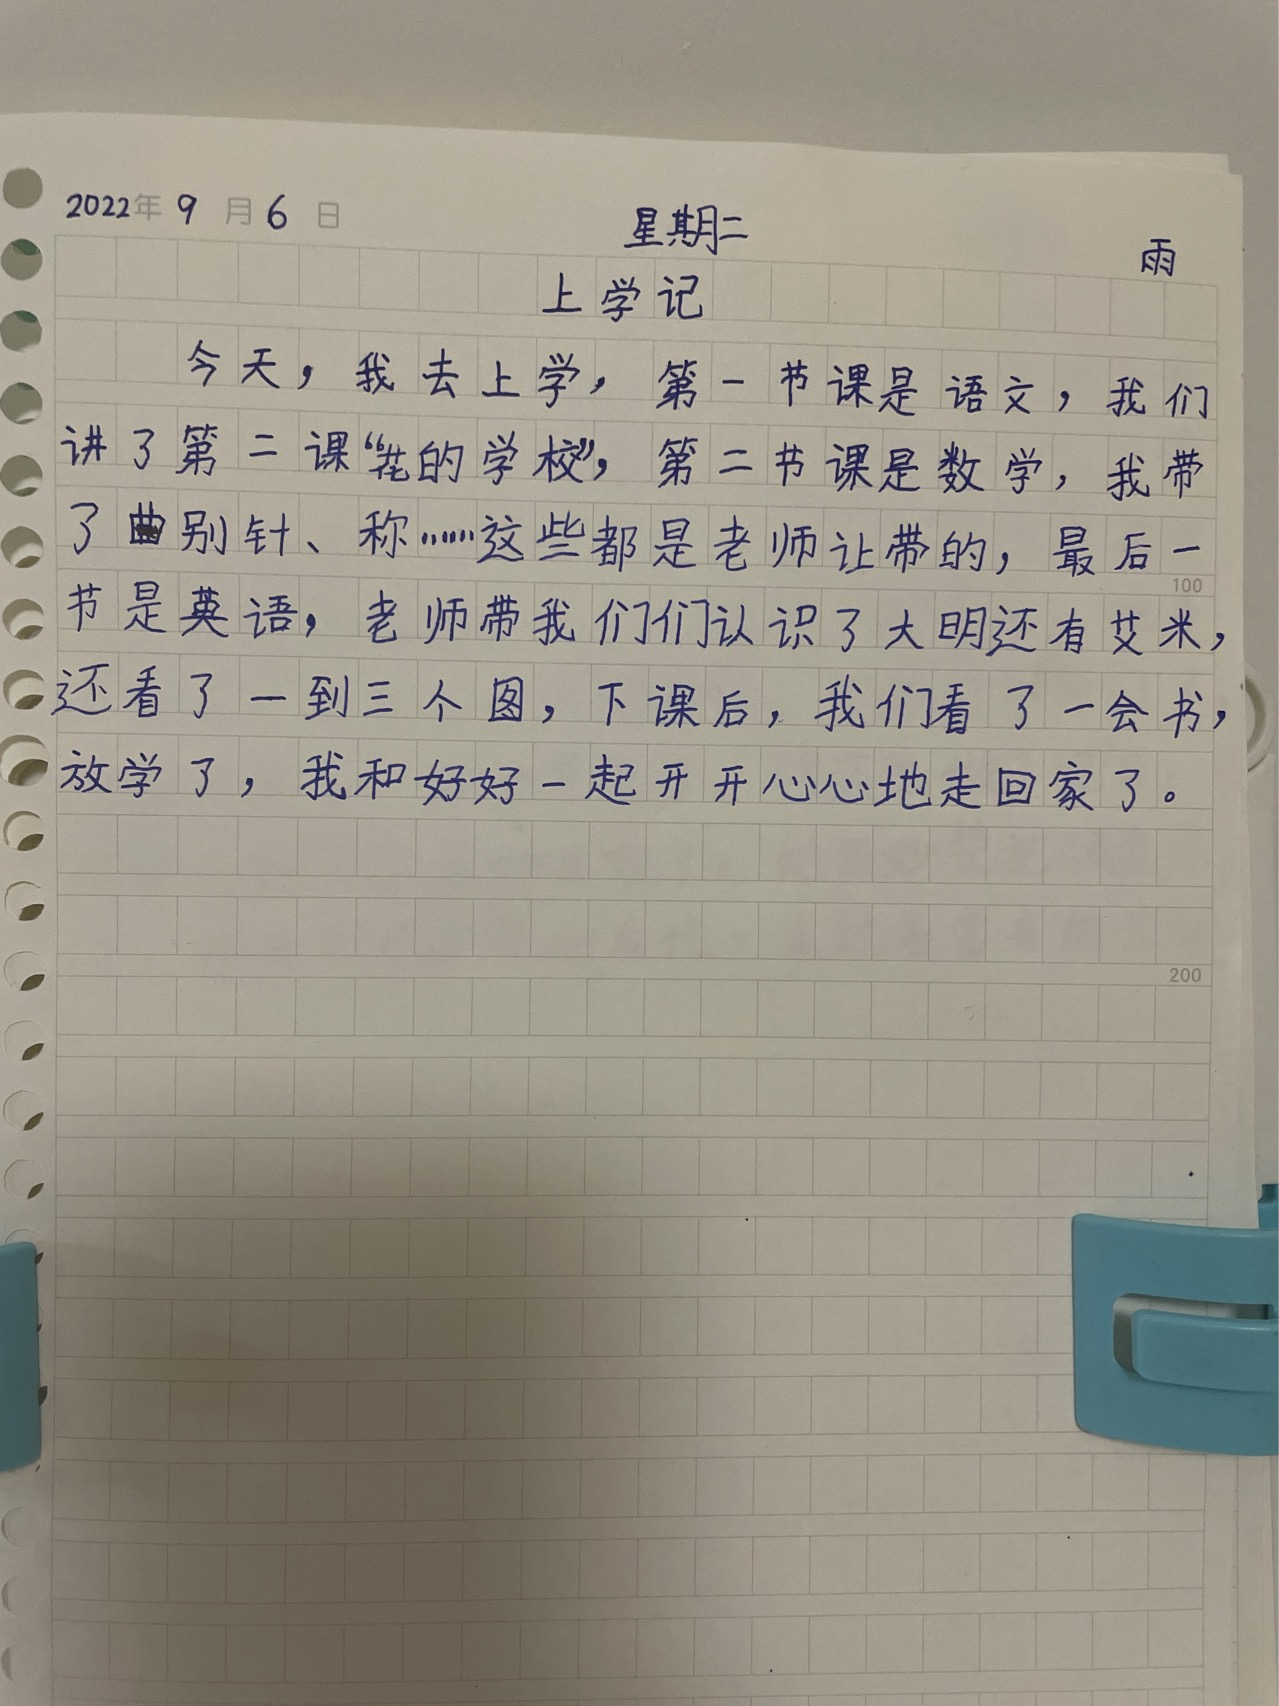 2022年 9 月 6 日 星期二 雨
上学记
今天，我去上学，第一节课是语文，我们
讲了第二课“花的学校”，第二节课是数学，我带
了曲别针、称……这些都是老师让带的，最后一
100
节是英语，老师带我们们认识了大明还有艾米，
还看了一到三个图，下课后，我们看了一会书，
放学了，我和好好一起开开心心地走回家了。
200